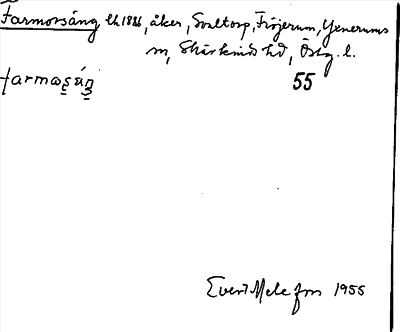 Farmorsäng lh. 1866, åker, Svaltorp, Fröjerum, Yxnerums
sn, Skärkinds hd, Östg. l.
farmoṣäŋ
55
Evert Melefors 1955